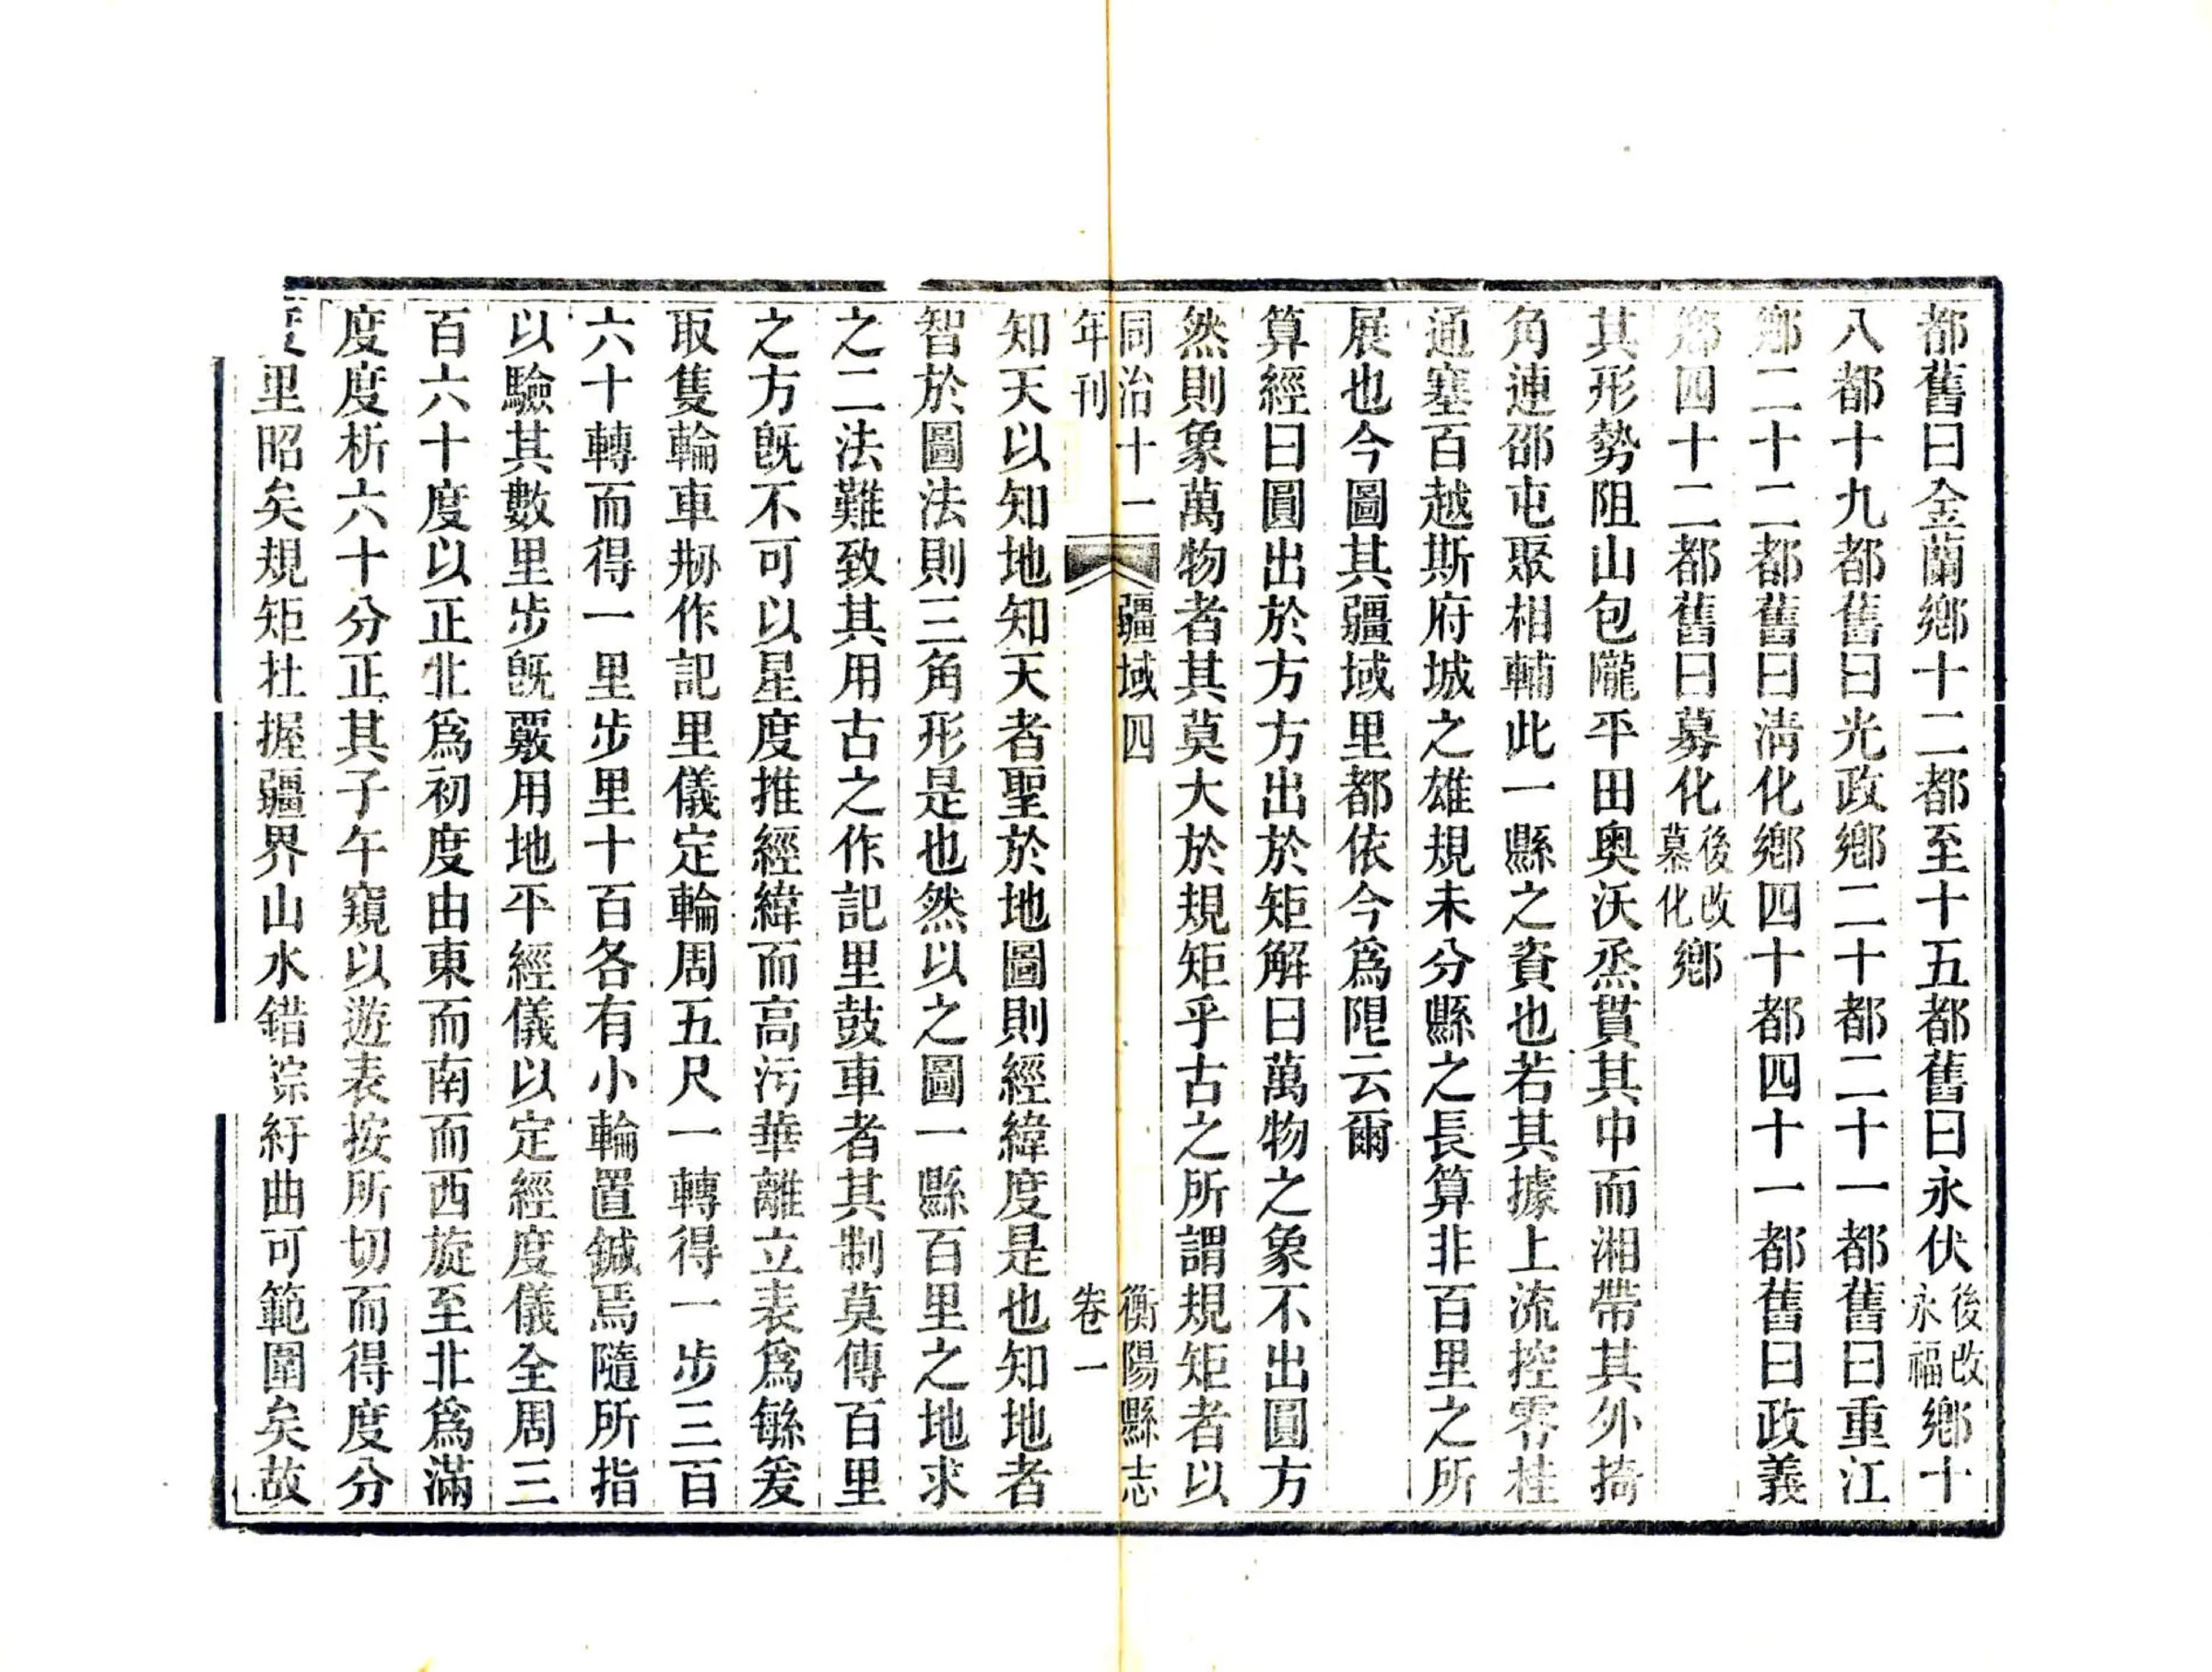 都舊曰金蘭鄉十二都至十五都舊曰永伏後改永福鄉十
八都十九都舊曰光政鄉二十都二十一都舊曰重江
鄉二十二都舊曰清化鄉四十都四十一都舊曰政義
鄉四十二都舊曰募化後改慕化鄉
其形勢阻山包隴平田奧沃烝貫其中而湘帶其外掎
角連邵屯聚相輔此一縣之資也若其據上流控零桂
通塞百越斯府城之雄規未分縣之長算非百里之所
展也今圖其疆域里都依今爲限云爾
算經曰圓出於方方出於矩解曰萬物之象不出圓方
然則象萬物者其莫大於規矩乎古之所謂規矩者以
同治十一年刊
疆域四
衡陽縣志卷一
知天以知地知天者聖於地圖則經緯度是也知地者
智於圖法則三角形是也然以之圖一縣百里之地求
之二法難致其用古之作記里鼓車者其制莫傳百里
之方旣不可以星度推經緯而高污華離立表爲繇爰
取隻輪車剙作記里儀定輪周五尺一轉得一步三百
六十轉而得一里步里十百各有小輪置鍼焉隨所指
以驗其數里步旣覈用地平經儀以定經度儀全周三
百六十度以正北爲初度由東而南而西旋至北爲滿
度度析六十分正其子午窺以遊表按所切而得度分
度里昭矣規矩社握疆界山水錯綜紆曲可範圍矣故